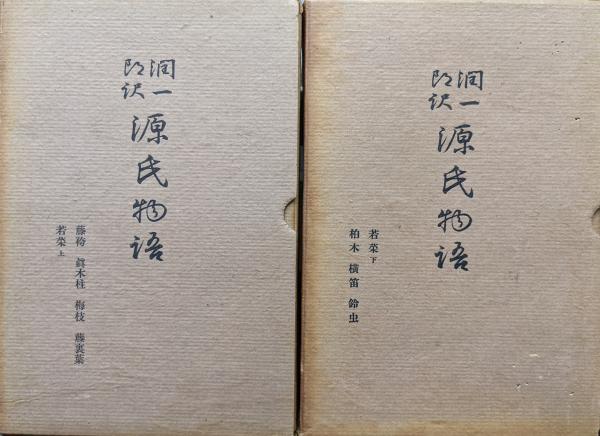 潤一
郎訳
源氏物語
藤袴 眞木柱 梅枝 藤裏葉
若菜 上
潤一
郎訳
源氏物語
若菜 下
柏木 横笛 鈴虫